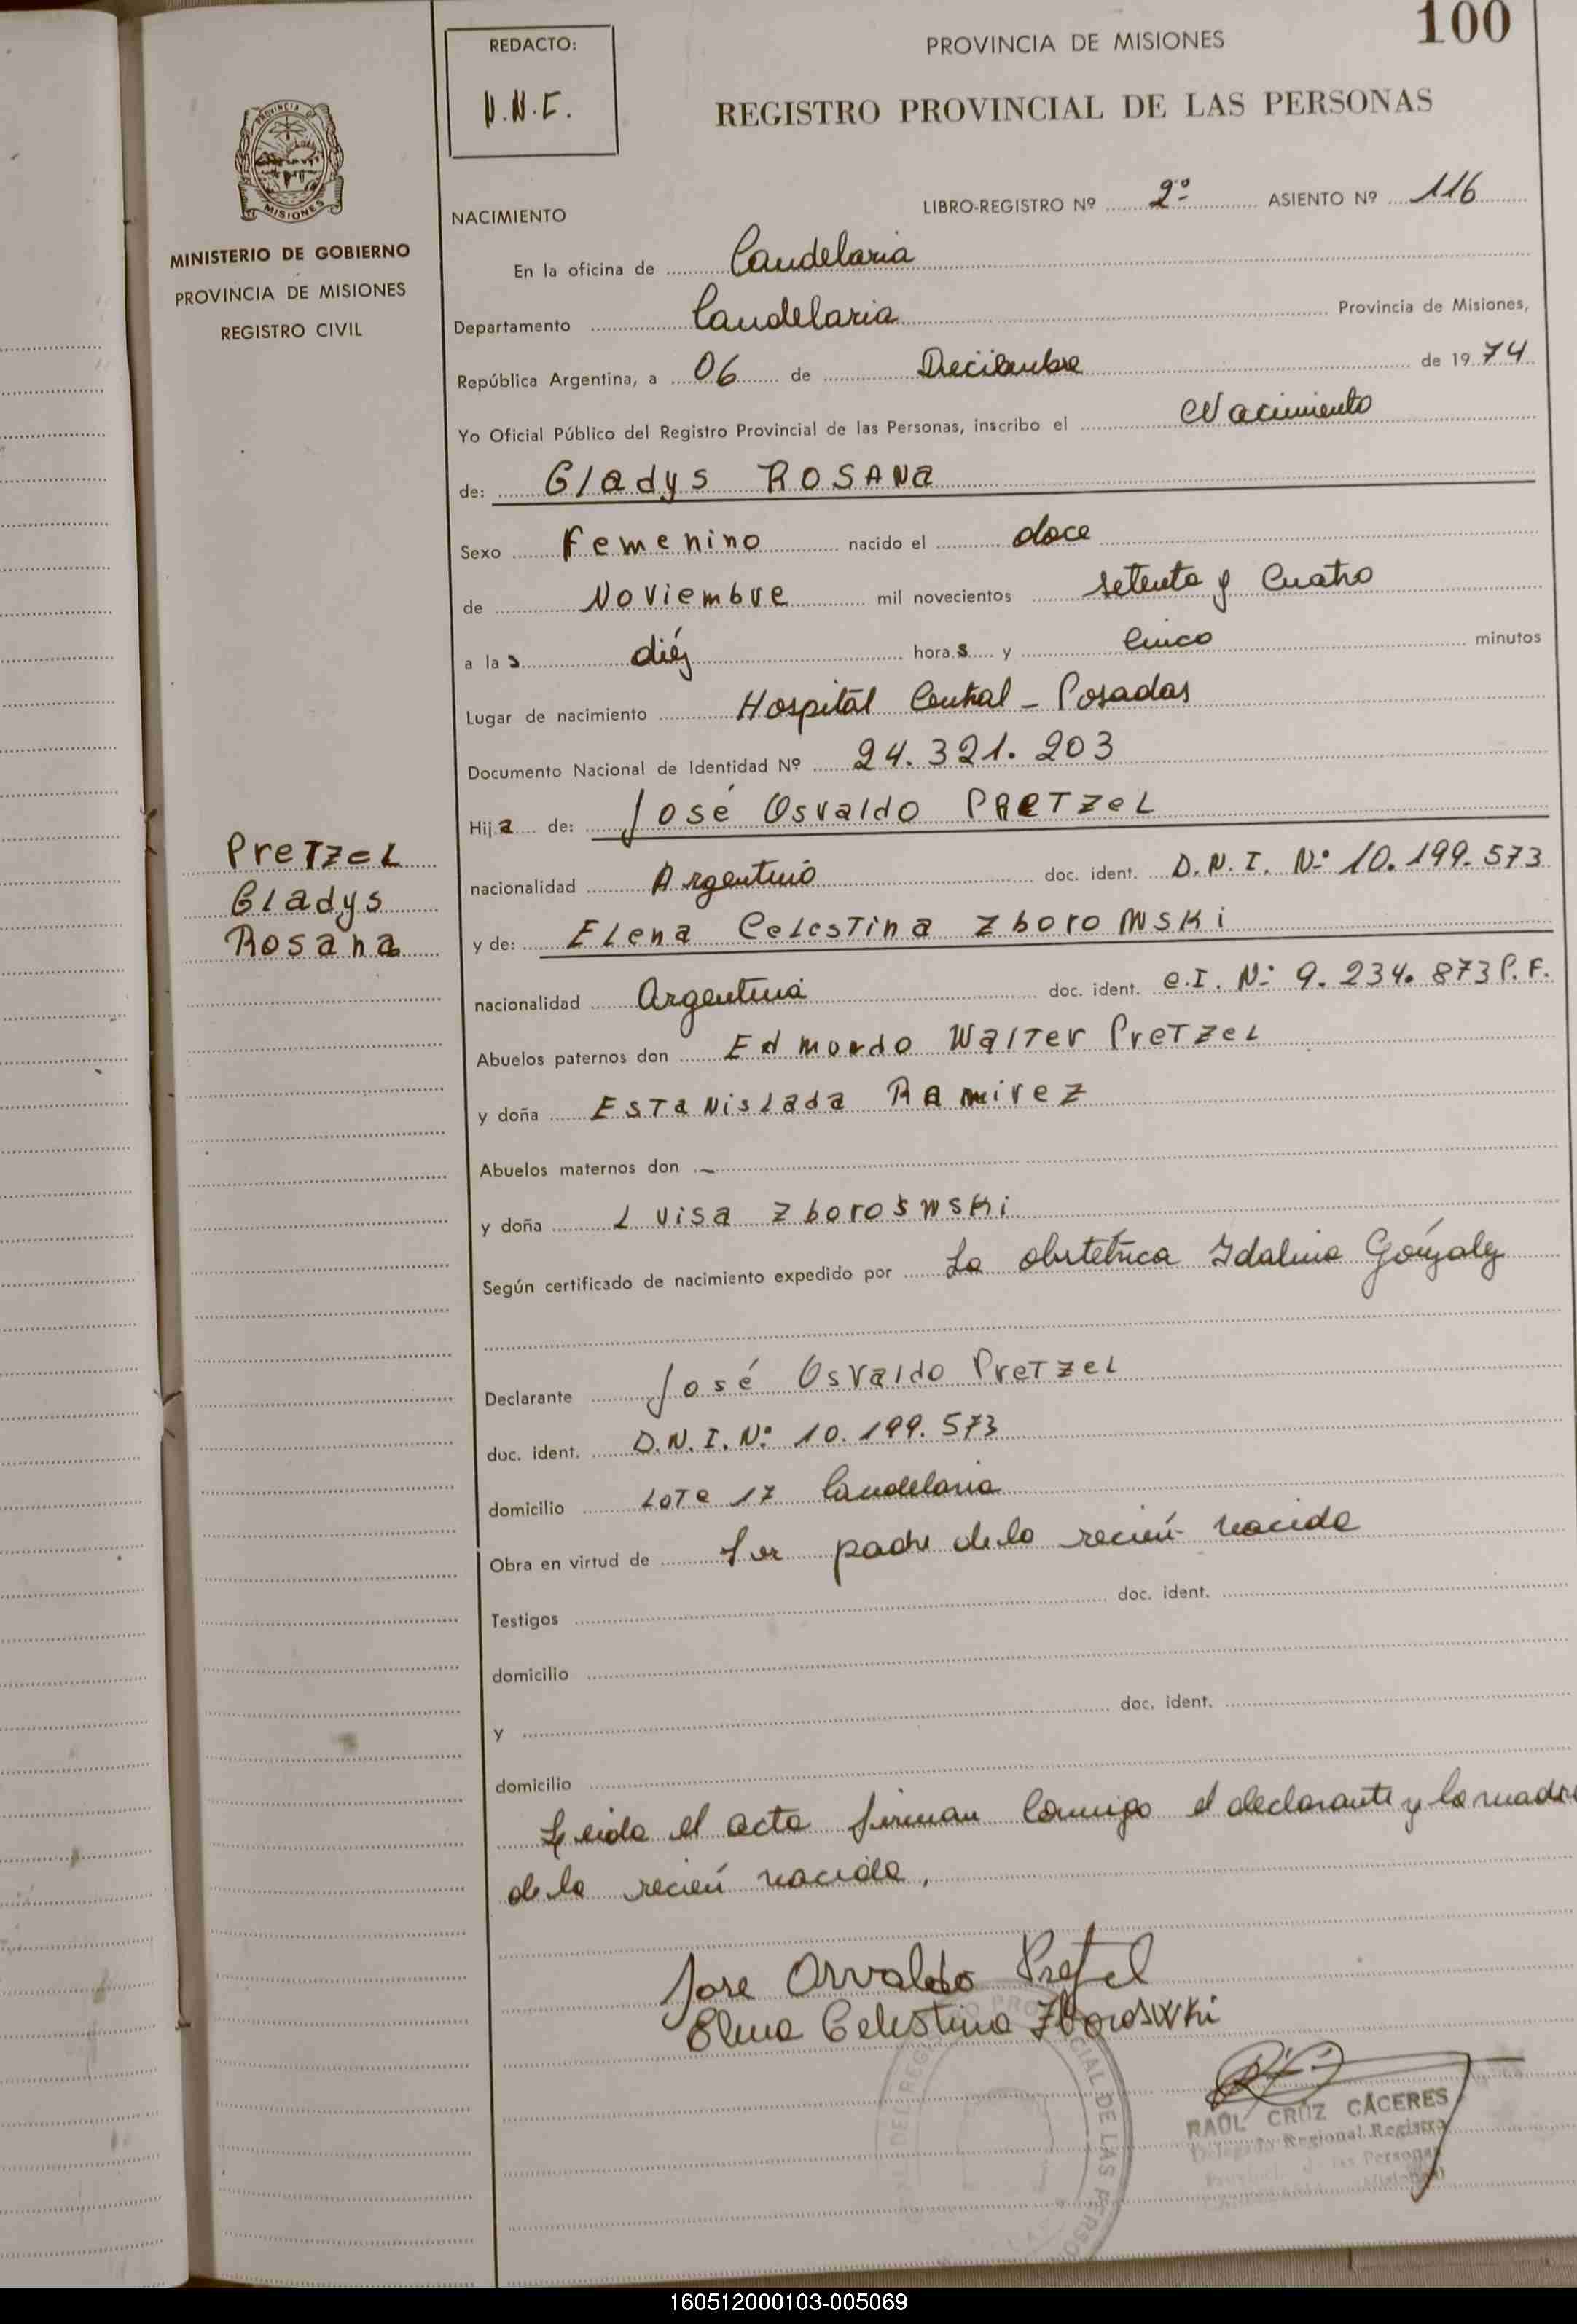 100
REDACTO:
PROVINCIA DE MISIONES
REGISTRO PROVINCIAL DE LAS PERSONAS
PROVINCIA DE
MISIONES
MINISTERIO DE GOBIERNO
PROVINCIA DE MISIONES
REGISTRO CIVIL
NACIMIENTO
LIBRO-REGISTRO Nº 2º ASIENTO Nº 116
En la oficina de Candelaria
Departamento Candelaria Provincia de Misiones,
República Argentina, a 06 de Diciembre de 1974
Yo Oficial Público del Registro Provincial de las Personas, inscribo el Nacimiento
de: Gladys ROSANA
Sexo Femenino nacido el doce
de Noviembre mil novecientos setenta y Cuatro
a las diéz horas y Cinco minutos
Lugar de nacimiento Hospital Central - Posadas
Documento Nacional de Identidad Nº 24.321.203
Hija de: José Osvaldo PRETZEL
nacionalidad Argentino doc. ident. D.N.I. Nº 10.199.573
y de: Elena Celestina Zborowski
nacionalidad Argentina doc. ident. C.I. Nº 9.234.873 P.F.
Abuelos paternos don Edmundo Walter Pretzel
y doña Estanislada Ramirez
Abuelos maternos don -
y doña Luisa Zboroswski
Según certificado de nacimiento expedido por La obstetrica Idalina Gónzalez
Declarante José Osvaldo Pretzel
doc. ident. D.N.I. Nº 10.199.573
domicilio Lote 17 Candelaria
Obra en virtud de Ser padre de la recién nacida
Testigos doc. ident.
domicilio
y doc. ident.
domicilio
Leida el acta firman Conmigo el declarante y la madre
de la recién nacida,
Pretzel
Gladys
Rosana
Jose Osvaldo Pretzel
Elena Celestina Zboroswki
RAUL CRUZ CACERES
Delegado Regional Registro
Personas
CIAL DE LAS PERSO
160512000103-005069